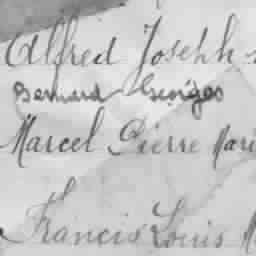 Alfred Joseph
Bernard Georges
Marcel Pierre Mari
Francis Louis M